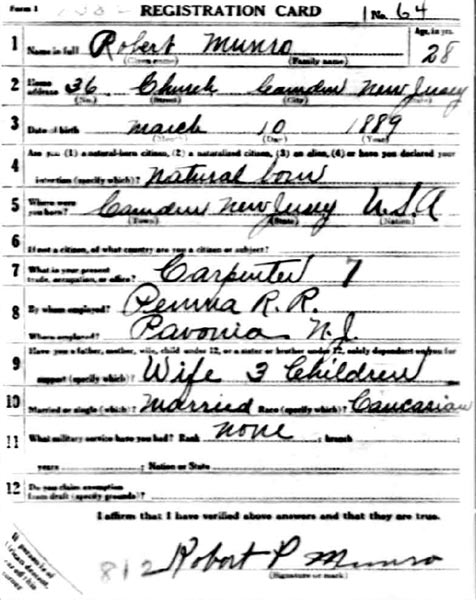 Form 1 REGISTRATION CARD No. 64
1 Name in full Robert Munro Age, in yrs. 28
(Given name) (Family name)
2 Home address 36 Church Camden New Jersey
(No.) (Street) (City) (State)
3 Date of birth March 10 1889
(Month) (Day) (Year)
Are you (1) a natural-born citizen, (2) a naturalized citizen, (3) an alien, (4) or have you declared your
4 intention (specify which)? Natural born
5 Where were you born? Camden New Jersey U.S.A
(Town) (State) (Nation)
6 If not a citizen, of what country are you a citizen or subject?
7 What is your present trade, occupation, or office? Carpenter 7
8 By whom employed? Penna R. R.
Where employed? Pavonia N. J.
9 Have you a father, mother, wife, child under 12, or a sister or brother under 12, solely dependent on you for
support (specify which)? Wife 3 Children
10 Married or single (which)? Married Race (specify which)? Caucasian
11 What military service have you had? Rank none ; branch
years ; Nation or State
12 Do you claim exemption from draft (specify grounds)?
I affirm that I have verified above answers and that they are true.
812 Robert P Munro
(Signature or mark)
If person is